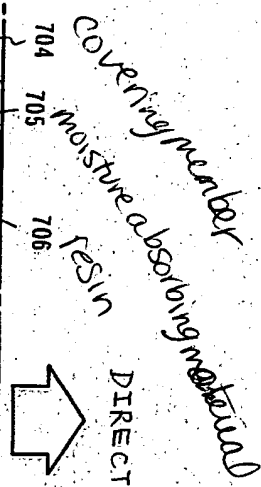 704
covering member
705
moisture absorbing material
706
resin
DIRECT